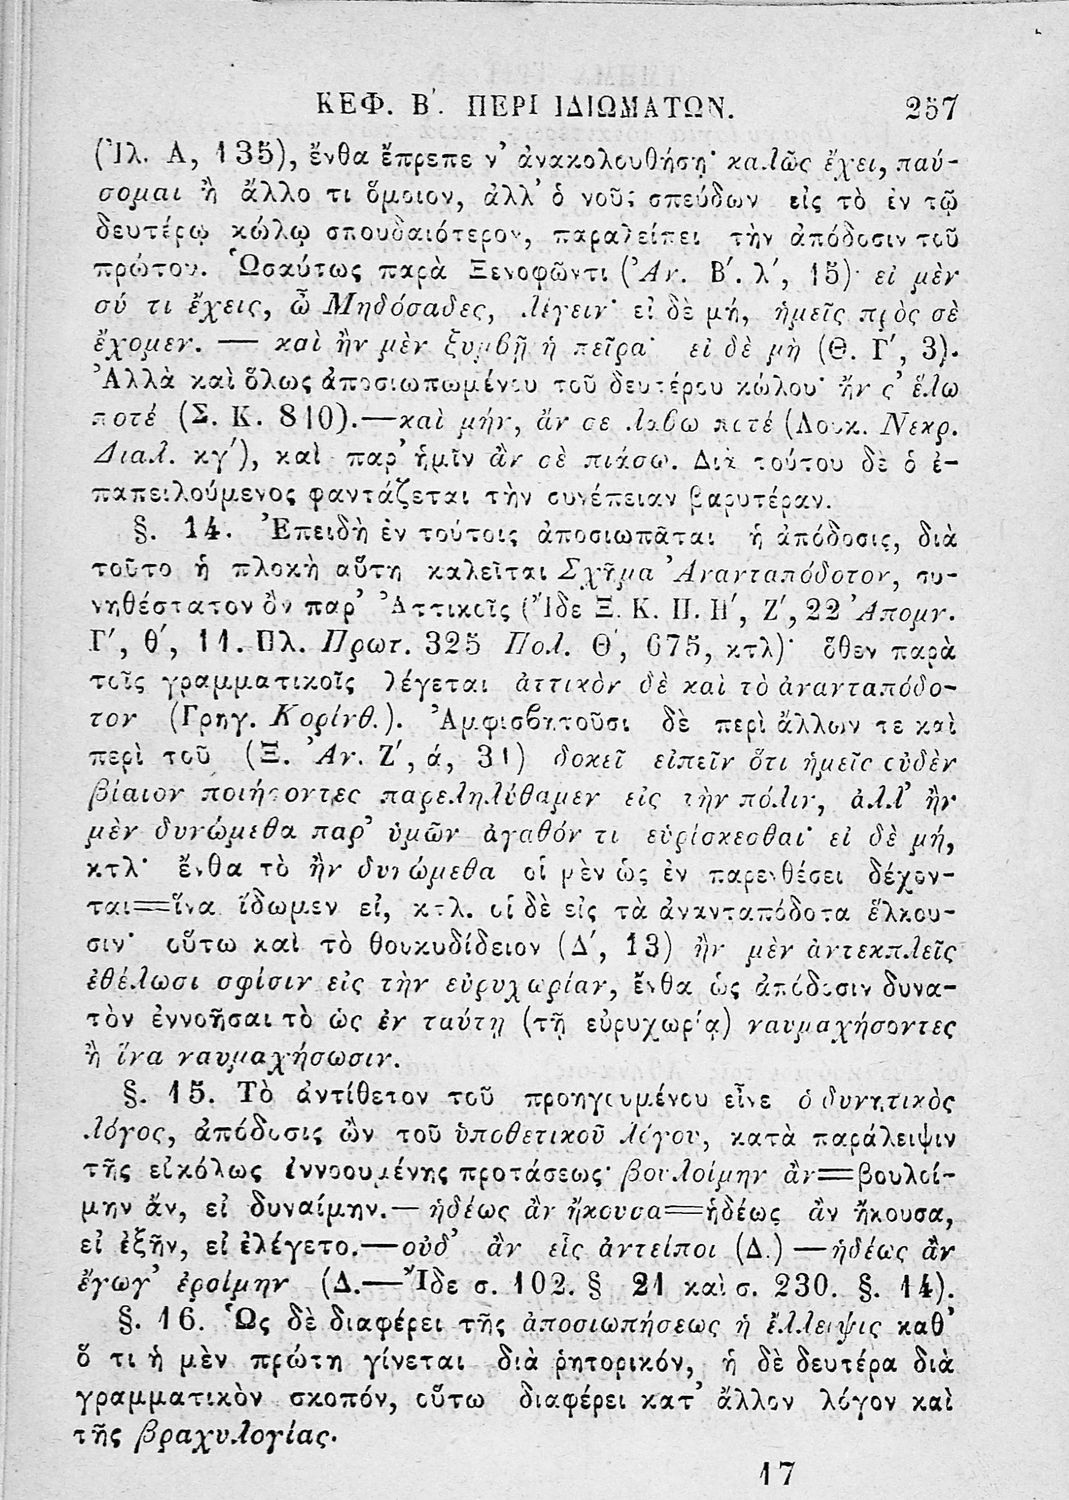 ΚΕΦ. Β΄. ΠΕΡΙ ΙΔΙΩΜΑΤΩΝ. 257
(Ἰλ. Α, 135), ἔνθα ἔπρεπε ν' ἀνακολουθήσῃ· καλῶς ἔχει, παύ-
σομαι ἢ ἄλλο τι ὅμοιον, ἀλλ' ὁ νοῦς σπεύδων εἰς τὸ ἐν τῷ
δευτέρῳ κώλῳ σπουδαιότερον, παραλείπει τὴν ἀπόδοσιν τοῦ
πρώτου. Ὡσαύτως παρὰ Ξενοφῶντι (Ἀν. Β΄. λ΄, 15)· εἰ μὲν
σύ τι ἔχεις, ὦ Μηδόσαδες, λέγειν· εἰ δὲ μή, ἡμεῖς πρὸς σὲ
ἔχομεν. — καὶ ἢν μὲν ξυμβῇ ἡ πεῖρα· εἰ δὲ μὴ (Θ. Γ΄, 3).
Ἀλλὰ καὶ ὅλως ἀποσιωπωμένου τοῦ δευτέρου κώλου· ἤν σ' ἕλω
ποτέ (Σ. Κ. 810).—καὶ μήν, ἄν σε λάβω ποτέ (Λουκ. Νεκρ.
Διαλ. κγ΄), καὶ παρ' ἡμῖν ἂν σὲ πιάσω. Διὰ τούτου δὲ ὁ ἐ-
παπειλούμενος φαντάζεται τὴν συνέπειαν βαρυτέραν.
§. 14. Ἐπειδὴ ἐν τούτοις ἀποσιωπᾶται ἡ ἀπόδοσις, διὰ
τοῦτο ἡ πλοκὴ αὕτη καλεῖται Σχῆμα Ἀνανταπόδοτον, συ-
νηθέστατον ὂν παρ' Ἀττικοῖς (Ἴδε Ξ. Κ. Π. Η΄, Ζ΄, 22 Ἀπομν.
Γ΄, θ΄, 11. Πλ. Πρωτ. 325 Πολ. Θ΄, 675, κτλ)· ὅθεν παρὰ
τοῖς γραμματικοῖς λέγεται ἀττικὸν δὲ καὶ τὸ ἀνανταπόδο-
τον (Γρηγ. Κορίνθ.). Ἀμφισβητοῦσι δὲ περὶ ἄλλων τε καὶ
περὶ τοῦ (Ξ. Ἀν. Ζ΄, ά, 31) δοκεῖ εἰπεῖν ὅτι ἡμεῖς οὐδὲν
βίαιον ποιήσοντες παρεληλύθαμεν εἰς τὴν πόλιν, ἀλλ' ἢν
μὲν δυνώμεθα παρ' ὑμῶν ἀγαθόν τι εὑρίσκεσθαι· εἰ δὲ μή,
κτλ· ἔνθα τὸ ἢν δυνώμεθα οἱ μὲν ὡς ἐν παρενθέσει δέχον-
ται=ἵνα ἴδωμεν εἰ, κτλ. οἱ δὲ εἰς τὰ ἀνανταπόδοτα ἕλκου-
σιν· οὕτω καὶ τὸ θουκυδίδειον (Δ΄, 13) ἢν μὲν ἀντεκπλεῖς
ἐθέλωσι σφίσιν εἰς τὴν εὐρυχωρίαν, ἔνθα ὡς ἀπόδοσιν δυνα-
τὸν ἐννοῆσαι τὸ ὡς ἐν ταύτῃ (τῇ εὐρυχωρίᾳ) ναυμαχήσοντες
ἢ ἵνα ναυμαχήσωσιν.
§. 15. Τὸ ἀντίθετον τοῦ προηγουμένου εἶνε ὁ δυνητικὸς
λόγος, ἀπόδοσις ὢν τοῦ ὑποθετικοῦ λόγου, κατὰ παράλειψιν
τῆς εὐκόλως ἐννοουμένης προτάσεως· βουλοίμην ἂν=βουλοί-
μην ἄν, εἰ δυναίμην.— ἡδέως ἂν ἤκουσα=ἡδέως ἂν ἤκουσα,
εἰ ἐξῆν, εἰ ἐλέγετο.—οὐδ' ἂν εἷς ἀντείποι (Δ.)—ἡδέως ἂν
ἔγωγ' ἐροίμην (Δ.—Ἴδε σ. 102. § 21 καὶ σ. 230. §. 14).
§. 16. Ὡς δὲ διαφέρει τῆς ἀποσιωπήσεως ἡ ἔλλειψις καθ'
ὅ τι ἡ μὲν πρώτη γίνεται διὰ ῥητορικόν, ἡ δὲ δευτέρα διὰ
γραμματικὸν σκοπόν, οὕτω διαφέρει κατ' ἄλλον λόγον καὶ
τῆς βραχυλογίας.
17